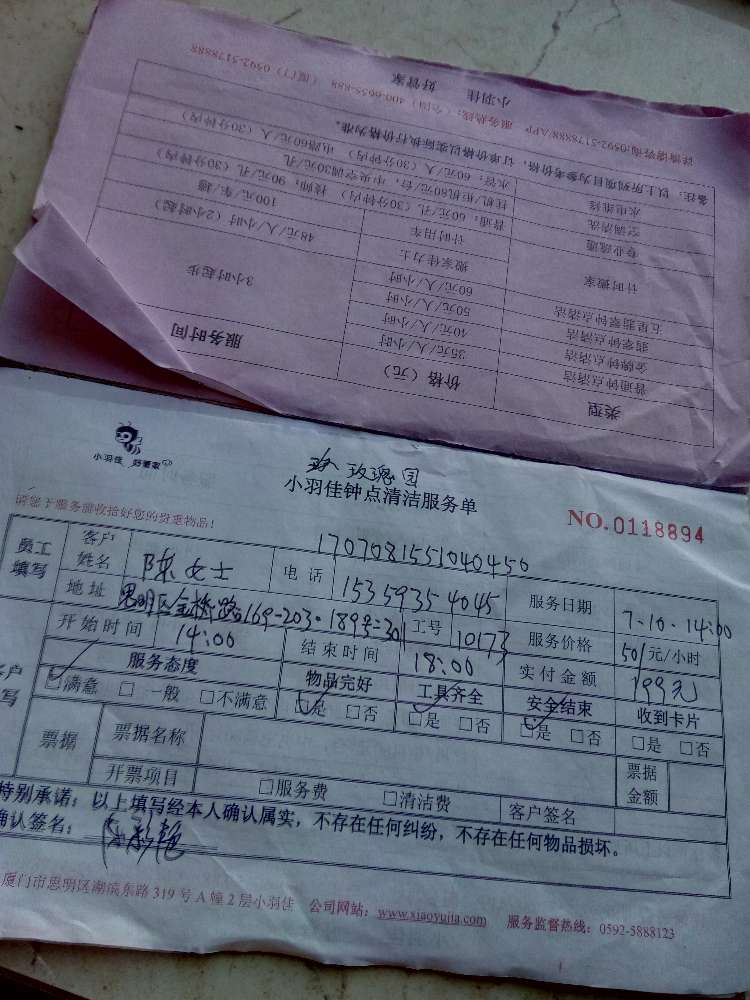 类型 价格（元） 服务时间
普通钟点清洁 35元/人/小时 3小时起步
金牌钟点清洁 40元/人/小时
翡翠钟点清洁 50元/人/小时
五星翡翠钟点清洁 60元/人/小时
计时搬家 搬家佳力士 48元/人/小时（2小时起）
计时用车 100元/车/趟
专业疏通 普通：60元/孔（30分钟内） 技师：90元/孔（30分钟内）
空调清洗 挂机/柜机80元/台，中央空调30元/孔
水电维修 水管：60元/人（30分钟内） 电路60元/人（30分钟内）
备注：以上所列项目为参考价格，订单价格以实际执行价格为准。
详情请咨询:0592-5178888/APP 服务热线：（全国）400-6655-888 （厦门）0592-5178888
小羽佳 好管家
小羽佳 好管家
玫瑰园
小羽佳钟点清洁服务单
NO.0118894
请您于服务前收拾好您的贵重物品！
170708155104045 0
员工填写 客户姓名 陈女士 电话 15359354045 服务日期 7.10.14:00
地址 思明区金桥路169-203·189号=301 工号 10173 服务价格 50/元/小时
开始时间 14:00 结束时间 18:00 实付金额 199元
客户填写 服务态度 物品完好 工具齐全 安全结束 收到卡片
☑满意 □一般 □不满意 ☑是 □否 ☑是 □否 ☑是 □否 □是 □否
票据 票据名称 票据金额
开票项目 □服务费 □清洁费 客户签名
特别承诺：以上填写经本人确认属实，不存在任何纠纷，不存在任何物品损坏。
确认签名：
厦门市思明区湖滨东路319号A幢2层小羽佳 公司网站：www.xiaoyujia.com 服务监督热线：0592-5888123